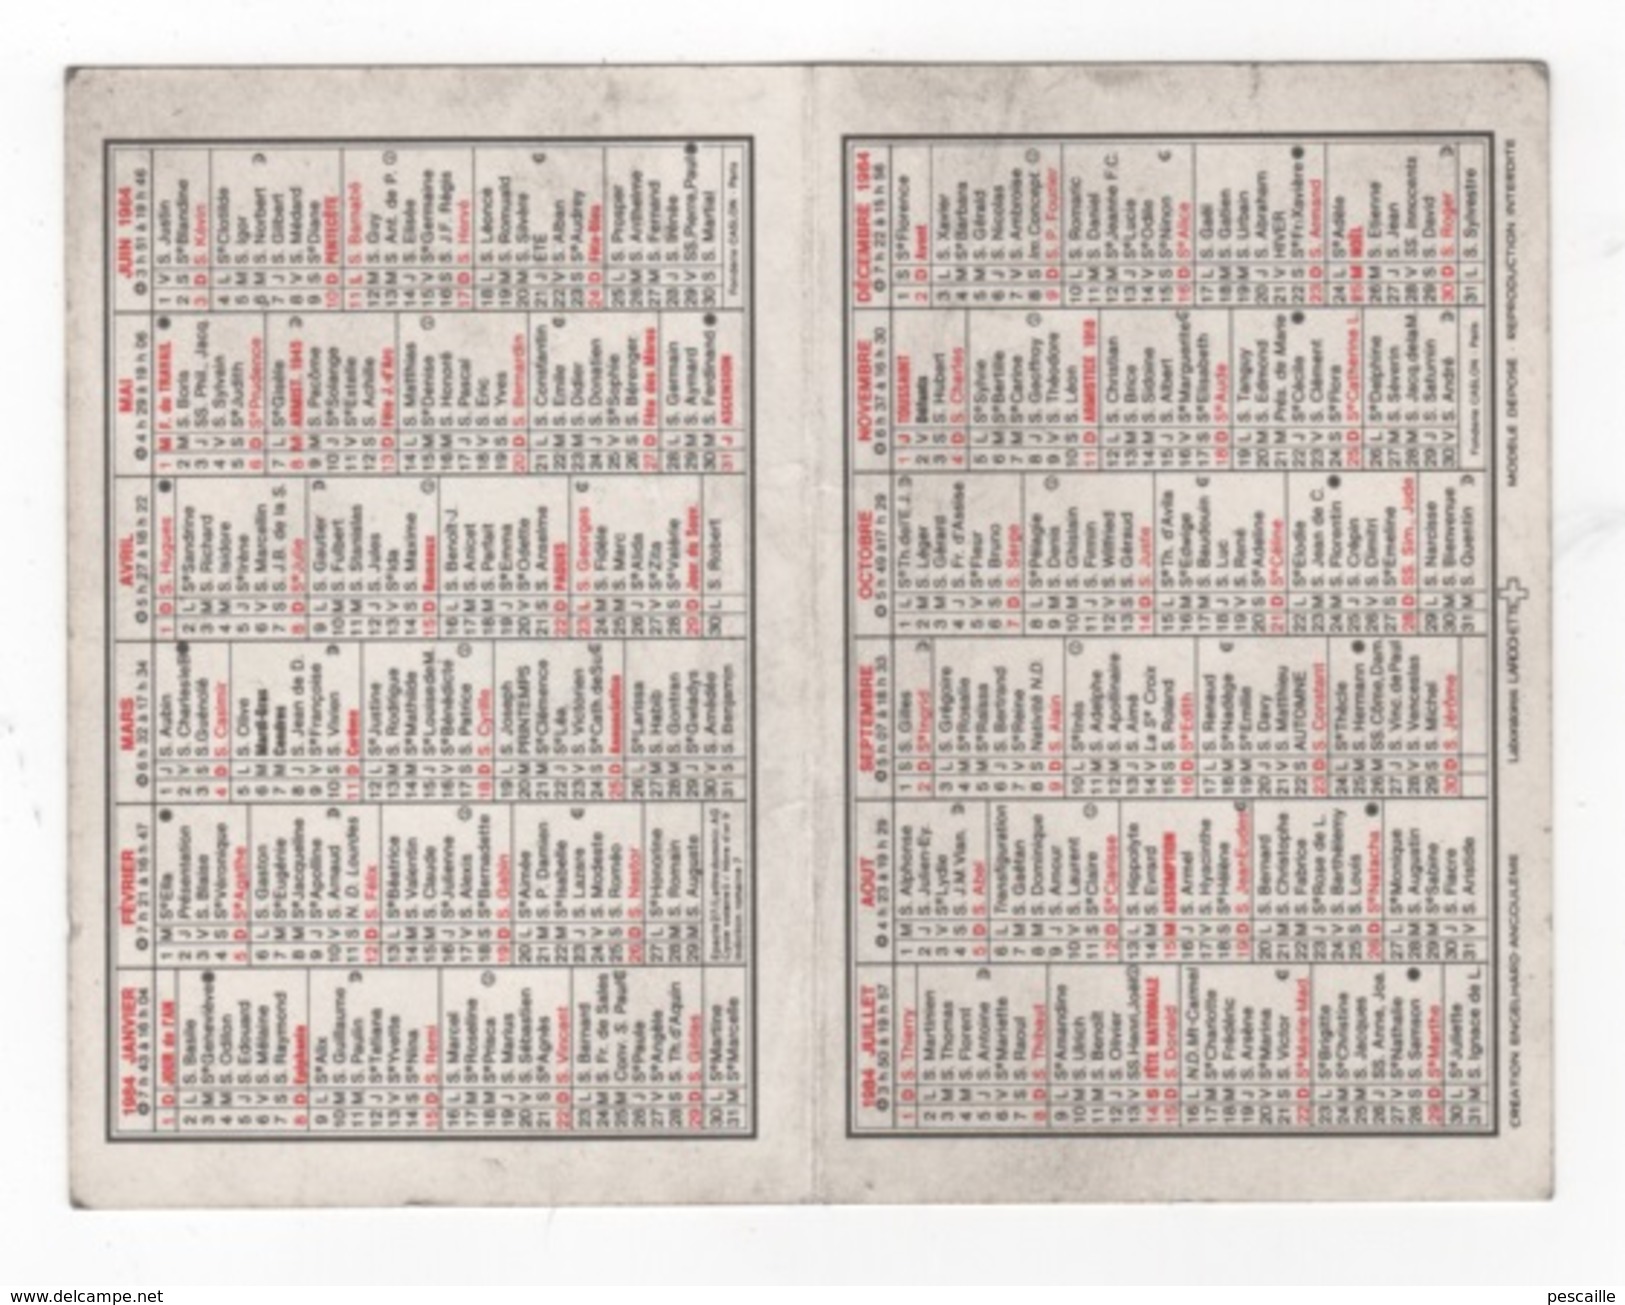 1984 JANVIER
7 h 43 à 16 h 04
1 D JOUR de l'AN
2 L S. Basile
3 M Sº Geneviève
4 M S. Odilon
5 J S. Edouard
6 V S. Mélaine
7 S S. Raymond
8 D Epiphanie
9 L Sº Alix
10 M S. Guillaume
11 M S. Paulin
12 J Sº Tatiana
13 V Sº Yvette
14 S Sº Nina
15 D S. Remi
16 L S. Marcel
17 M Sº Roseline
18 M Sº Prisca
19 J S. Marius
20 V S. Sébastien
21 S Sº Agnès
22 D S. Vincent
23 L S. Barnard
24 M S. Fr. de Sales
25 M Conv. S. Paul
26 J Sº Paule
27 V Sº Angèle
28 S S. Th. d'Aquin
29 D S. Gildas
30 L Sº Martine
31 M Sº Marcelle
FÉVRIER
7 h 21 à 16 h 47
1 M Sº Ella
2 J Présentation
3 V S. Blaise
4 S Sº Véronique
5 D Sº Agathe
6 L S. Gaston
7 M Sº Eugénie
8 M Sº Jacqueline
9 J Sº Apolline
10 V S. Arnaud
11 S N. D. Lourdes
12 D S. Félix
13 L Sº Béatrice
14 M S. Valentin
15 M S. Claude
16 J Sº Julienne
17 V S. Alexis
18 S Sº Bernadette
19 D S. Gabin
20 L Sº Aimée
21 M S. P. Damien
22 M Sº Isabelle
23 J S. Lazare
24 V S. Modeste
25 S S. Roméo
26 D S. Nestor
27 L Sº Honorine
28 M S. Romain
29 M S. Auguste
MARS
6 h 32 à 17 h 34
1 J S. Aubin
2 V S. Charles le B
3 S S. Guénolé
4 D S. Casimir
5 L S. Olive
6 M Mardi-Gras
7 M Cendres
8 J S. Jean de D.
9 V Sº Françoise
10 S S. Vivien
11 D Carême
12 L Sº Justine
13 M S. Rodrigue
14 M Sº Mathilde
15 J Sº Louise de M.
16 V Sº Bénédicte
17 S S. Patrice
18 D S. Cyrille
19 L S. Joseph
20 M PRINTEMPS
21 M Sº Clémence
22 J Sº Léa
23 V S. Victorien
24 S Sº Cath. de Su
25 D Annonciation
26 L Sº Larissa
27 M S. Habib
28 M S. Gontran
29 J Sº Gwladys
30 V S. Amédée
31 S S. Benjamin
AVRIL
5 h 27 à 18 h 22
1 D S. Hugues
2 L Sº Sandrine
3 M S. Richard
4 M S. Isidore
5 J Sº Irène
6 V S. Marcellin
7 S S. J.B. de la S.
8 D Sº Julie
9 L S. Gautier
10 M S. Fulbert
11 M S. Stanislas
12 J S. Jules
13 V Sº Ida
14 S S. Maxime
15 D Rameaux
16 L S. Benoît-J.
17 M S. Anicet
18 M S. Parfait
19 J Sº Emma
20 V Sº Odette
21 S S. Anselme
22 D PAQUES
23 L S. Georges
24 M S. Fidèle
25 M S. Marc
26 J Sº Alida
27 V Sº Zita
28 S Sº Valérie
29 D Jour du Souv.
30 L S. Robert
MAI
4 h 29 à 19 h 06
1 M F. du TRAVAIL
2 M S. Boris
3 J SS. Phil., Jacq.
4 V S. Sylvain
5 S Sº Judith
6 D Sº Prudence
7 L Sº Gisèle
8 M ARMIST. 1945
9 M S. Pacôme
10 J Sº Solange
11 V Sº Estelle
12 S S. Achille
13 D Fête J.-d'Arc
14 L S. Matthias
15 M Sº Denise
16 M S. Honoré
17 J S. Pascal
18 V S. Eric
19 S S. Yves
20 D S. Bernardin
21 L S. Constantin
22 M S. Emile
23 M S. Didier
24 J S. Donatien
25 V Sº Sophie
26 S S. Bérenger
27 D Fête des Mères
28 L S. Germain
29 M S. Aymard
30 M S. Ferdinand
31 J ASCENSION
JUIN 1984
3 h 51 à 19 h 46
1 V S. Justin
2 S Sº Blandine
3 D S. Kévin
4 L Sº Clotilde
5 M S. Igor
6 M S. Norbert
7 J S. Gilbert
8 V S. Médard
9 S Sº Diane
10 D PENTECÔTE
11 L S. Barnabé
12 M S. Guy
13 M S. Ant. de P.
14 J S. Elisée
15 V Sº Germaine
16 S S. J.F. Régis
17 D S. Hervé
18 L S. Léonce
19 M S. Romuald
20 M S. Silvère
21 J ÉTÉ
22 V S. Alban
23 S Sº Audrey
24 D Fête-Dieu
25 L S. Prosper
26 M S. Anthelme
27 M S. Fernand
28 J S. Irénée
29 V SS. Pierre, Paul
30 S S. Martial
Fonderie CASLON Paris
1984 JUILLET
3 h 50 à 19 h 57
1 D S. Thierry
2 L S. Martinien
3 M S. Thomas
4 M S. Florent
5 J S. Antoine
6 V Sº Mariette
7 S S. Raoul
8 D S. Thibaut
9 L Sº Amandine
10 M S. Ulrich
11 M S. Benoît
12 J S. Olivier
13 V SS. Henri, Joël
14 S FÊTE NATIONALE
15 D S. Donald
16 L N.D. Mt-Carmel
17 M Sº Charlotte
18 M S. Frédéric
19 J S. Arsène
20 V Sº Marina
21 S S. Victor
22 D Sº Marie-Mad.
23 L Sº Brigitte
24 M Sº Christine
25 M S. Jacques
26 J SS. Anna, Joa.
27 V Sº Nathalie
28 S S. Samson
29 D Sº Marthe
30 L Sº Juliette
31 M S. Ignace de L.
AOUT
4 h 23 à 19 h 29
1 M S. Alphonse
2 J S. Julien-Ey.
3 V Sº Lydie
4 S S. J.M. Vian.
5 D S. Abel
6 L Transfiguration
7 M S. Gaétan
8 M S. Dominique
9 J S. Amour
10 V S. Laurent
11 S Sº Claire
12 D Sº Clarisse
13 L S. Hippolyte
14 M S. Evrard
15 M ASSOMPTION
16 J S. Armel
17 V S. Hyacinthe
18 S Sº Hélène
19 D S. Jean Eudes
20 L S. Bernard
21 M S. Christophe
22 M S. Fabrice
23 J Sº Rose de L.
24 V S. Barthélemy
25 S S. Louis
26 D Sº Natacha
27 L Sº Monique
28 M S. Augustin
29 M Sº Sabine
30 J S. Fiacre
31 V S. Aristide
SEPTEMBRE
5 h 07 à 18 h 33
1 S S. Gilles
2 D Sº Ingrid
3 L S. Grégoire
4 M Sº Rosalie
5 M Sº Raïssa
6 J S. Bertrand
7 V Sº Reine
8 S Nativité N.D.
9 D S. Alain
10 L Sº Inès
11 M S. Adelphe
12 M S. Apollinaire
13 J S. Aimé
14 V La Sº Croix
15 S S. Roland
16 D Sº Edith
17 L S. Renaud
18 M Sº Nadège
19 M Sº Emilie
20 J S. Davy
21 V S. Matthieu
22 S AUTOMNE
23 D S. Constant
24 L Sº Thècle
25 M S. Hermann
26 M SS. Côme, Dam
27 J S. Vinc. de Paul
28 V S. Venceslas
29 S S. Michel
30 D S. Jérôme
OCTOBRE
5 h 49 à 17 h 29
1 L Sº Th. de l'E. J.
2 M S. Léger
3 M S. Gérard
4 J S. Fr. d'Assise
5 V Sº Fleur
6 S S. Bruno
7 D S. Serge
8 L Sº Pélagie
9 M S. Denis
10 M S. Ghislain
11 J S. Firmin
12 V S. Wilfried
13 S S. Géraud
14 D S. Juste
15 L Sº Th. d'Avila
16 M Sº Edwige
17 M S. Baudouin
18 J S. Luc
19 V S. René
20 S Sº Adeline
21 D Sº Céline
22 L Sº Elodie
23 M S. Jean de C.
24 M S. Florentin
25 J S. Crépin
26 V S. Dimitri
27 S Sº Emeline
28 D SS. Sim., Jude
29 L S. Narcisse
30 M S. Bienvenue
31 M S. Quentin
NOVEMBRE
6 h 37 à 16 h 30
1 J TOUSSAINT
2 V Défunts
3 S S. Hubert
4 D S. Charles
5 L Sº Sylvie
6 M Sº Bertille
7 M Sº Carine
8 J S. Geoffroy
9 V S. Théodore
10 S S. Léon
11 D ARMISTICE 1918
12 L S. Christian
13 M S. Brice
14 M S. Sidoine
15 J S. Albert
16 V Sº Marguerite
17 S Sº Elisabeth
18 D Sº Aude
19 L S. Tanguy
20 M S. Edmond
21 M Prés. de Marie
22 J Sº Cécile
23 V S. Clément
24 S Sº Flora
25 D Sº Catherine L.
26 L Sº Delphine
27 M S. Séverin
28 M S. Jacq. de la M.
29 J S. Saturnin
30 V S. André
Fonderie CASLON Paris
DÉCEMBRE 1984
7 h 22 à 15 h 56
1 S Sº Florence
2 D Avent
3 L S. Xavier
4 M Sº Barbara
5 M S. Gérald
6 J S. Nicolas
7 V S. Ambroise
8 S Im. Concept.
9 D S. P. Fourier
10 L S. Romaric
11 M S. Daniel
12 M Sº Jeanne F.C.
13 J Sº Lucie
14 V Sº Odile
15 S Sº Ninon
16 D Sº Alice
17 L S. Gaël
18 M S. Gatien
19 M S. Urbain
20 J S. Abraham
21 V HIVER
22 S Sº Fr. Xavière
23 D S. Armand
24 L Sº Adèle
25 M NOËL
26 M S. Etienne
27 J S. Jean
28 V SS. Innocents
29 S S. David
30 D S. Roger
31 L S. Sylvestre
CRÉATION ENGELHARD-ANGOULÊME
Laboratoires LAROCHETTE
MODÈLE DÉPOSÉ REPRODUCTION INTERDITE
pescaille